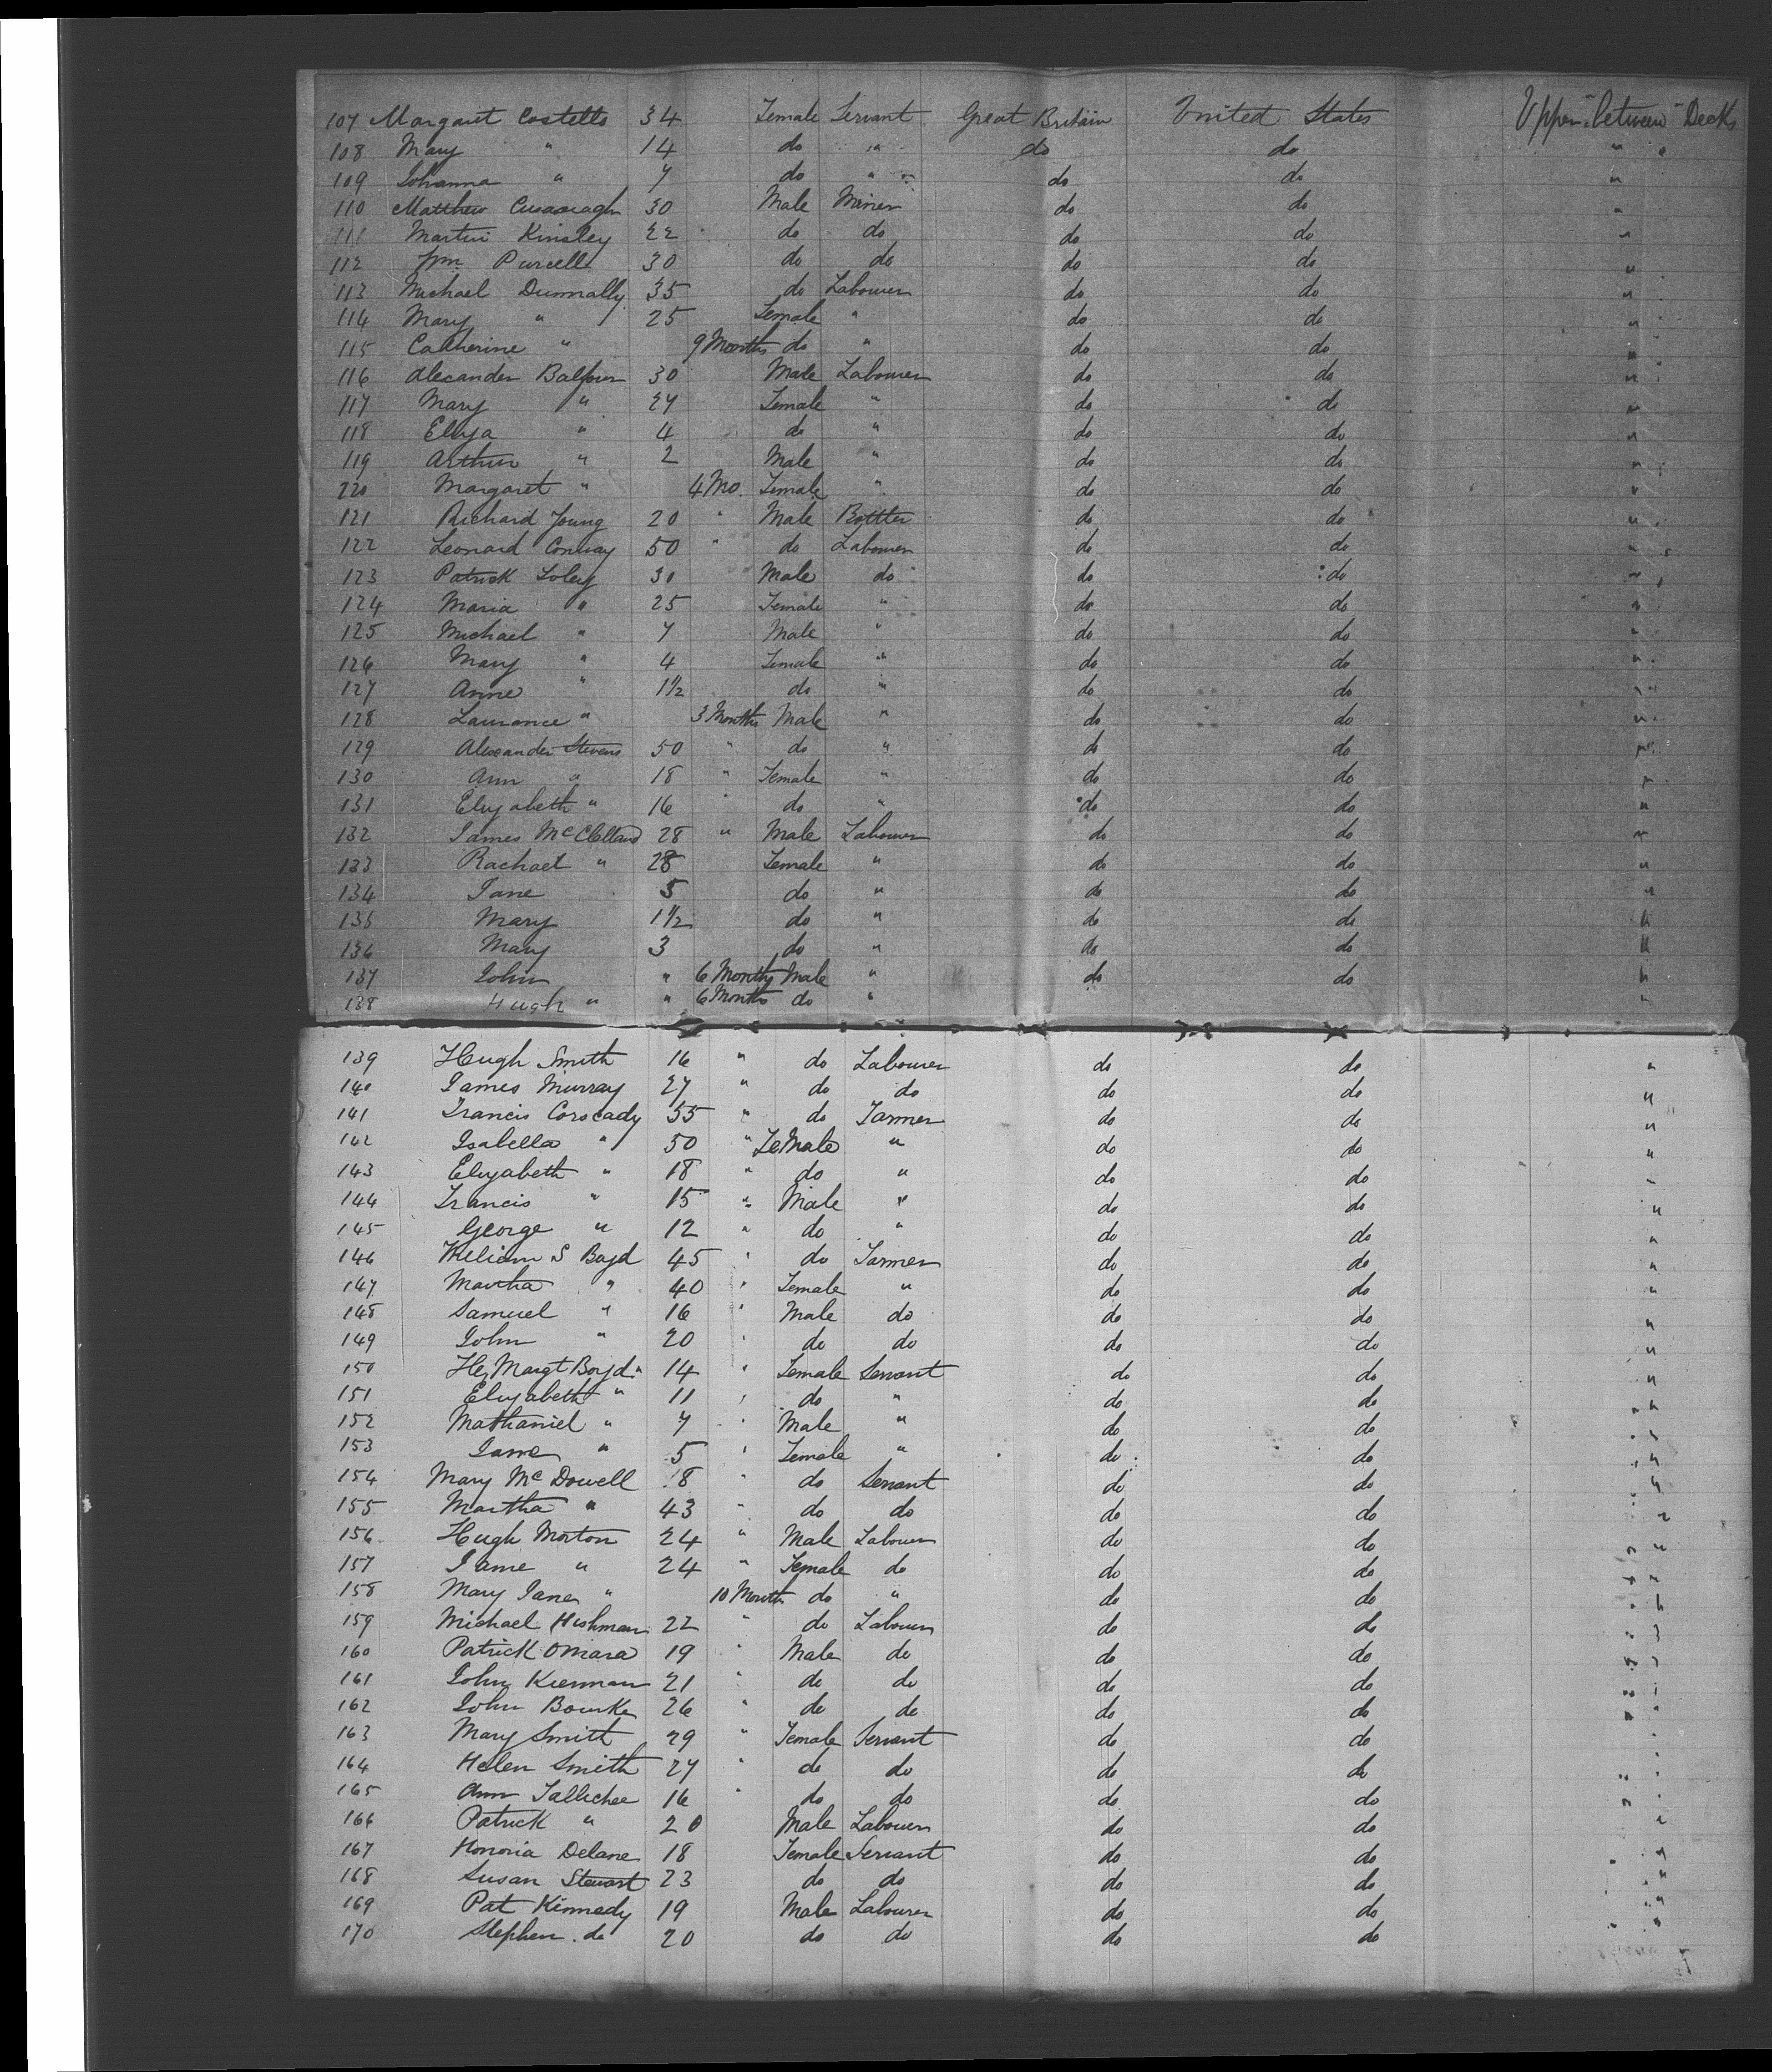 107 Margaret Costello 34 Female Servant Great Britain United States Upper between Decks
108 Mary " 14 do " do do "
109 Johanna " 7 do " do do "
110 Matthew 30 Male Miner do do "
111 Martin Kinsley 22 do do do do "
112 Wm Purcell 30 do do do do "
113 Michael Dunnally 35 do Labourer do do "
114 Mary " 25 Female " do do "
115 Catherine " 9 Months do " do do "
116 Alexander Balfour 30 Male Labourer do do "
117 Mary " 27 Female " do do "
118 Eliza " 4 do " do do "
119 Arthur " 2 Male " do do "
120 Margaret " 4 Mo. Female " do do "
121 Richard Young 20 " Male Bottler do do "
122 Leonard Conway 50 " do Labourer do do "
123 Patrick Foley 30 Male do do do "
124 Maria " 25 Female " do do "
125 Michael " 7 Male " do do "
126 Mary " 4 Female " do do "
127 Anne " 1½ do " do do "
128 Laurance " 3 Months Male " do do "
129 Alexander Stevens 50 " do " do do "
130 Ann " 18 " Female " do do "
131 Elizabeth " 16 " do " do do "
132 James McClelland 28 " Male Labourer do do "
133 Rachael " 28 Female " do do "
134 Jane 5 do " do do "
135 Mary 1½ do " do do "
136 Mary 3 do " do do "
137 John " 6 Months Male " do do "
138 Hugh " " 6 Months do " "
139 Hugh Smith 16 " do Labourer do do "
140 James Murray 27 " do do do do "
141 Francis Corscady 55 " do Farmer do do "
142 Isabella " 50 " FeMale " do do "
143 Elizabeth " 18 " do " do do "
144 Francis " 15 " Male " do do "
145 George " 12 " do " do do "
146 William S Boyd 45 " do Farmer do do "
147 Martha " 40 " Female " do do "
148 Samuel " 16 " Male do do do "
149 John " 20 " do do do do "
150 Margt Boyd " 14 " Female Servant do do "
151 Elizabeth " 11 " do " do do "
152 Nathaniel " 7 " Male " do do "
153 Jane " 5 " Female " do do "
154 Mary McDowell 18 " do Servant do do "
155 Martha " 43 " do do do do "
156 Hugh Morton 24 " Male Labourer do do "
157 Jane " 24 " Female do do do "
158 Mary Jane " 10 Months do " do do "
159 Michael Hishman 22 " do Labourer do do "
160 Patrick OMara 19 " Male do do do "
161 John Kiernan 21 " do do do do "
162 John Bourke 26 " do do do do "
163 Mary Smith 29 " Female Servant do do "
164 Helen Smith 27 " do do do do "
165 Ann 16 " do do do do "
166 Patrick " 20 Male Labourer do do "
167 Honoria Delane 18 Female Servant do do "
168 Susan Stewart 23 do do do do "
169 Pat Kinnedy 19 Male Labourer do do "
170 Stephen do 20 do do do do "